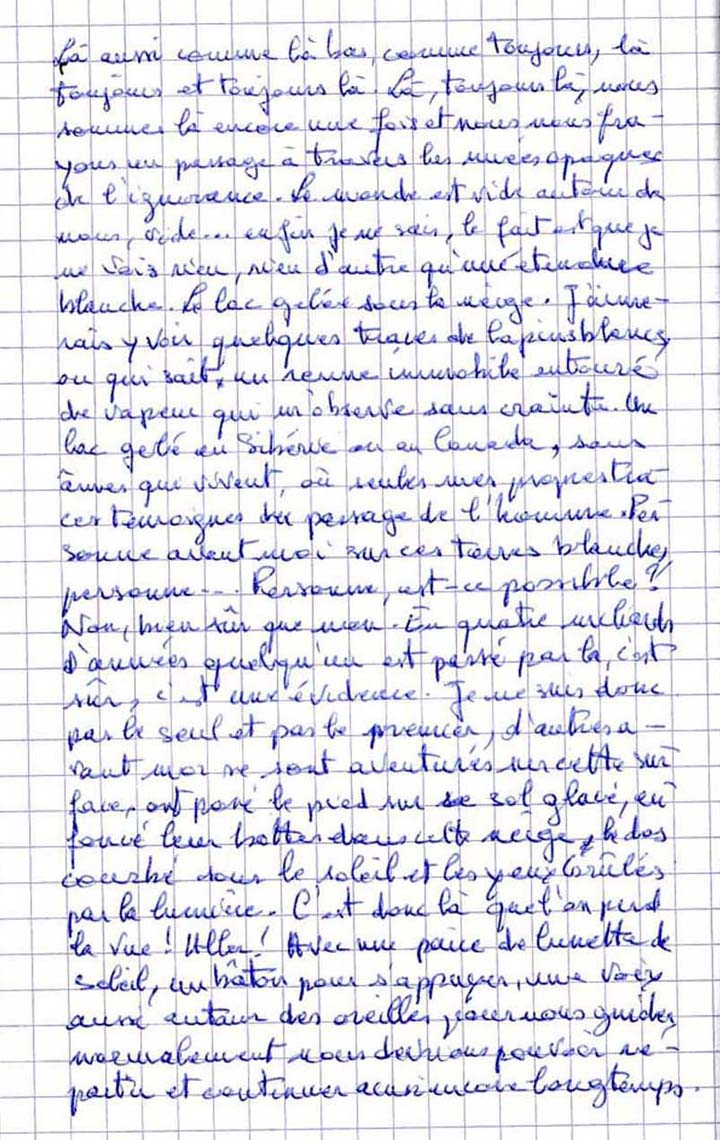 Là aussi comme là bas, comme toujours, là
toujours et toujours là. Là, toujours là, nous
sommes là encore une fois et nous nous fra-
yons un passage à travers les nuées opaques
de l'ignorance. Le monde est vide autour de
nous, vide... enfin je ne sais, le fait est que je
ne vois rien, rien d'autre qu'une étendue
blanche. Le lac gelée sous la neige. J'aime-
rais y voir quelques traces de lapins blancs,
ou qui sait, un renne immobile entouré
de vapeur qui m'observe sans crainte. Un
lac gelé en Sibérie ou au Canada, sans
âmes qui vivent, où seules mes propres tra
ces témoignes du passage de l'homme. Per
sonne avant moi sur ces terres blanches,
personne... Personne, est-ce possible ?
Non, bien sûr que non. En quatre milliards
d'années quelqu'un est passé par là, c'est
sûr, c'est une évidence. Je ne suis donc
pas le seul et pas le premier, d'autres a-
vant moi se sont aventurés sur cette sur
face, ont posé le pied sur ce sol glacé, en
foncé leur bottes dans cette neige, le dos
courbé sous le soleil et les yeux brûlés
par la lumière. C'est donc là que l'on perd
la vue ! Aller ! Avec une paire de lunettes de
soleil, un bâton pour s'appuyer, une voix
autour des oreilles pour nous guider,
normalement nous devrions pouvoir re-
partir et continuer ainsi encore longtemps.